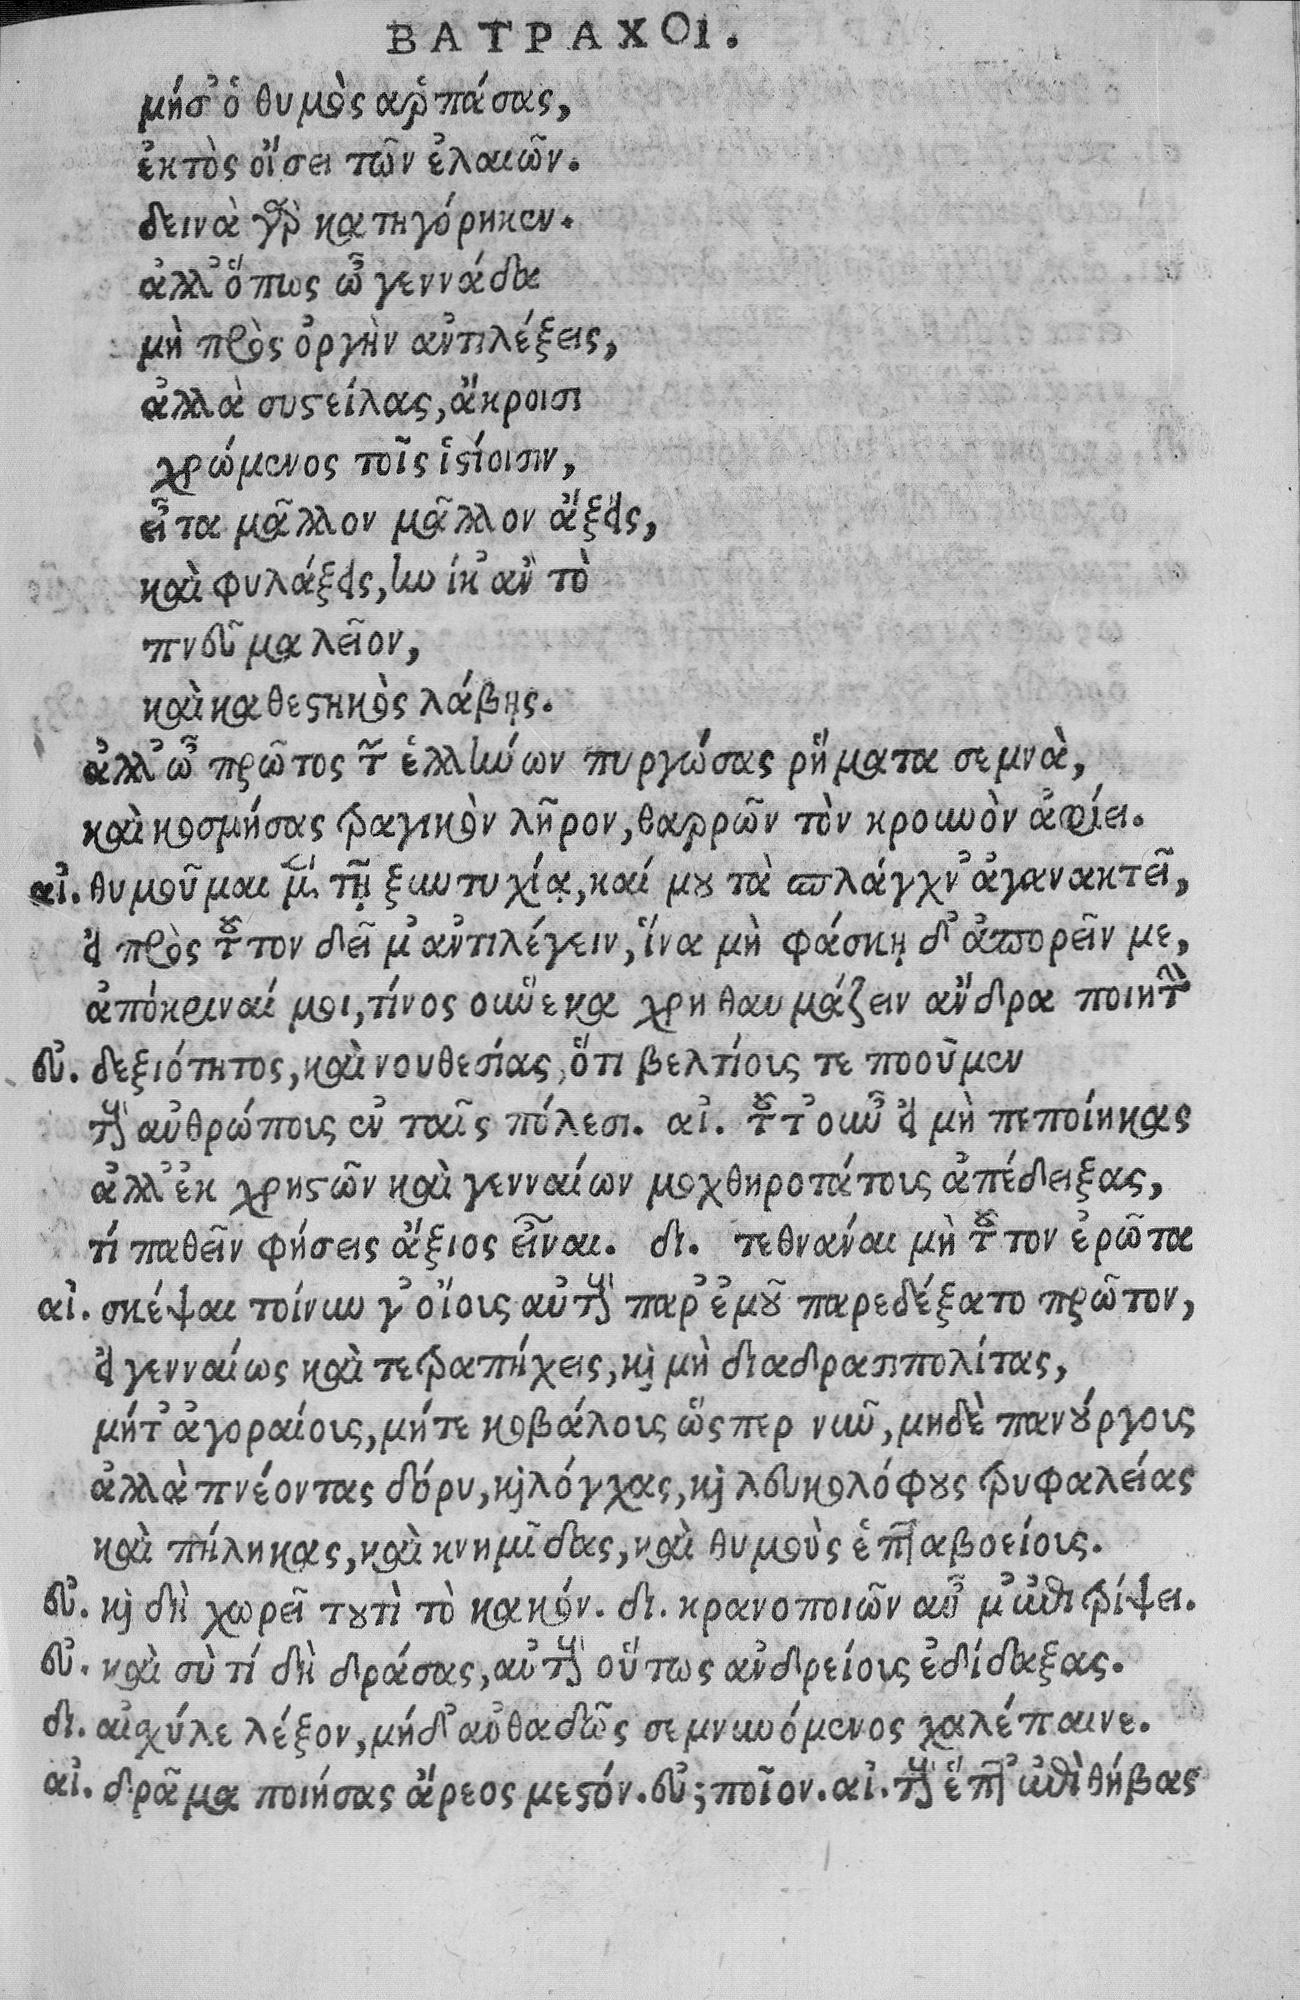 ΒΑΤΡΑΧΟΙ.
μήσ' ὁ θυμὸς ἁρπάσας,
ἐκτὸς οἴσει τῶν ἐλαιῶν.
δεινὰ γὰρ κατηγόρηκεν.
ἀλλ' ὅπως ὦ γεννάδα
μὴ πρὸς ὀργὴν ἀντιλέξεις,
ἀλλὰ συστείλας, ἄκροισι
χρώμενος τοῖς ἱστίοισιν,
εἶτα μᾶλλον μᾶλλον ἄξεις,
καὶ φυλάξεις, ἡνίκ' ἂν τὸ
πνεῦμα λεῖον,
καὶ καθεστηκὸς λάβῃς.
ἀλλ' ὦ πρῶτος τῶν ἑλλήνων πυργώσας ῥήματα σεμνὰ,
καὶ κοσμήσας τραγικὸν λῆρον, θαρρῶν τὸν κρουνὸν ἀφίει.
αἰ. θυμοῦμαι μὲν τῇ ξυντυχίᾳ, καί μου τὰ σπλάγχν' ἀγανακτεῖ,
εἰ πρὸς τοῦτον δεῖ μ' ἀντιλέγειν, ἵνα μὴ φάσκῃ δ' ἀπορεῖν με,
ἀπόκριναί μοι, τίνος οὕνεκα χρὴ θαυμάζειν ἄνδρα ποιητὴν
εὐ. δεξιότητος, καὶ νουθεσίας, ὅτι βελτίοις τε ποοῦμεν
τοὺς ἀνθρώποις ἐν ταῖς πόλεσι. αἰ. τοῦτ' οὖν εἰ μὴ πεποίηκας
ἀλλ' ἐκ χρηστῶν καὶ γενναίων μοχθηροτάτοις ἀπέδειξας,
τί παθεῖν φήσεις ἄξιος εἶναι. δι. τεθνάναι μὴ τοῦτον ἐρῶτα
αἰ. σκέψαι τοίνυν γ' οἵοις αὐτοὺς παρ' ἐμοῦ παρεδέξατο πρῶτον,
εἰ γενναίως καὶ τετραπήχεις, καὶ μὴ διαδρασιπολίτας,
μήτ' ἀγοραίοις, μήτε κοβάλοις ὥσπερ νῦν, μηδὲ πανούργοις
ἀλλὰ πνέοντας δόρυ, καὶ λόγχας, καὶ λευκολόφους τρυφαλείας
καὶ πήληκας, καὶ κνημῖδας, καὶ θυμοὺς ἑπταβοείοις.
εὐ. καὶ δὴ χωρεῖ τουτὶ τὸ κακόν. δι. κρανοποιῶν αὖ μ' ἐπιτρίψει.
εὐ. καὶ σὺ τί δὴ δράσας, αὐτοὺς οὕτως ἀνδρείοις ἐδίδαξας.
δι. αἰσχύλε λέξον, μήδ' αὐθαδῶς σεμνυνόμενος χαλέπαινε.
αἰ. δρᾶμα ποιήσας ἄρεος μεστόν. εὐ; ποῖον. αἰ. τοὺς ἕπτ' ἐπὶ θήβας